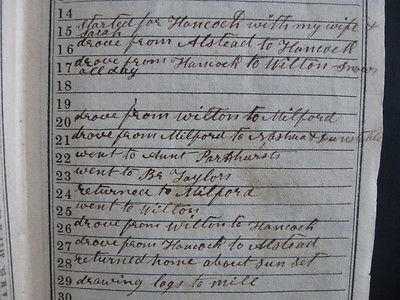 14
15 started for Hancock with my wife &
Sarah
16 drove from Alstead to Hancock
17 drove from Hancock to Wilton Snows
all day
18
19
20 drove from Wilton to Milford
21 drove from Milford to Nashua & Dunstable
22 went to Aunt Parkhursts
23 went to Br Taylors
24 returned to Milford
25 went to Wilton
26 drove from Wilton to Hancock
27 drove from Hancock to Alstead
28 returned home about sun set
29 drawing logs to mill
30